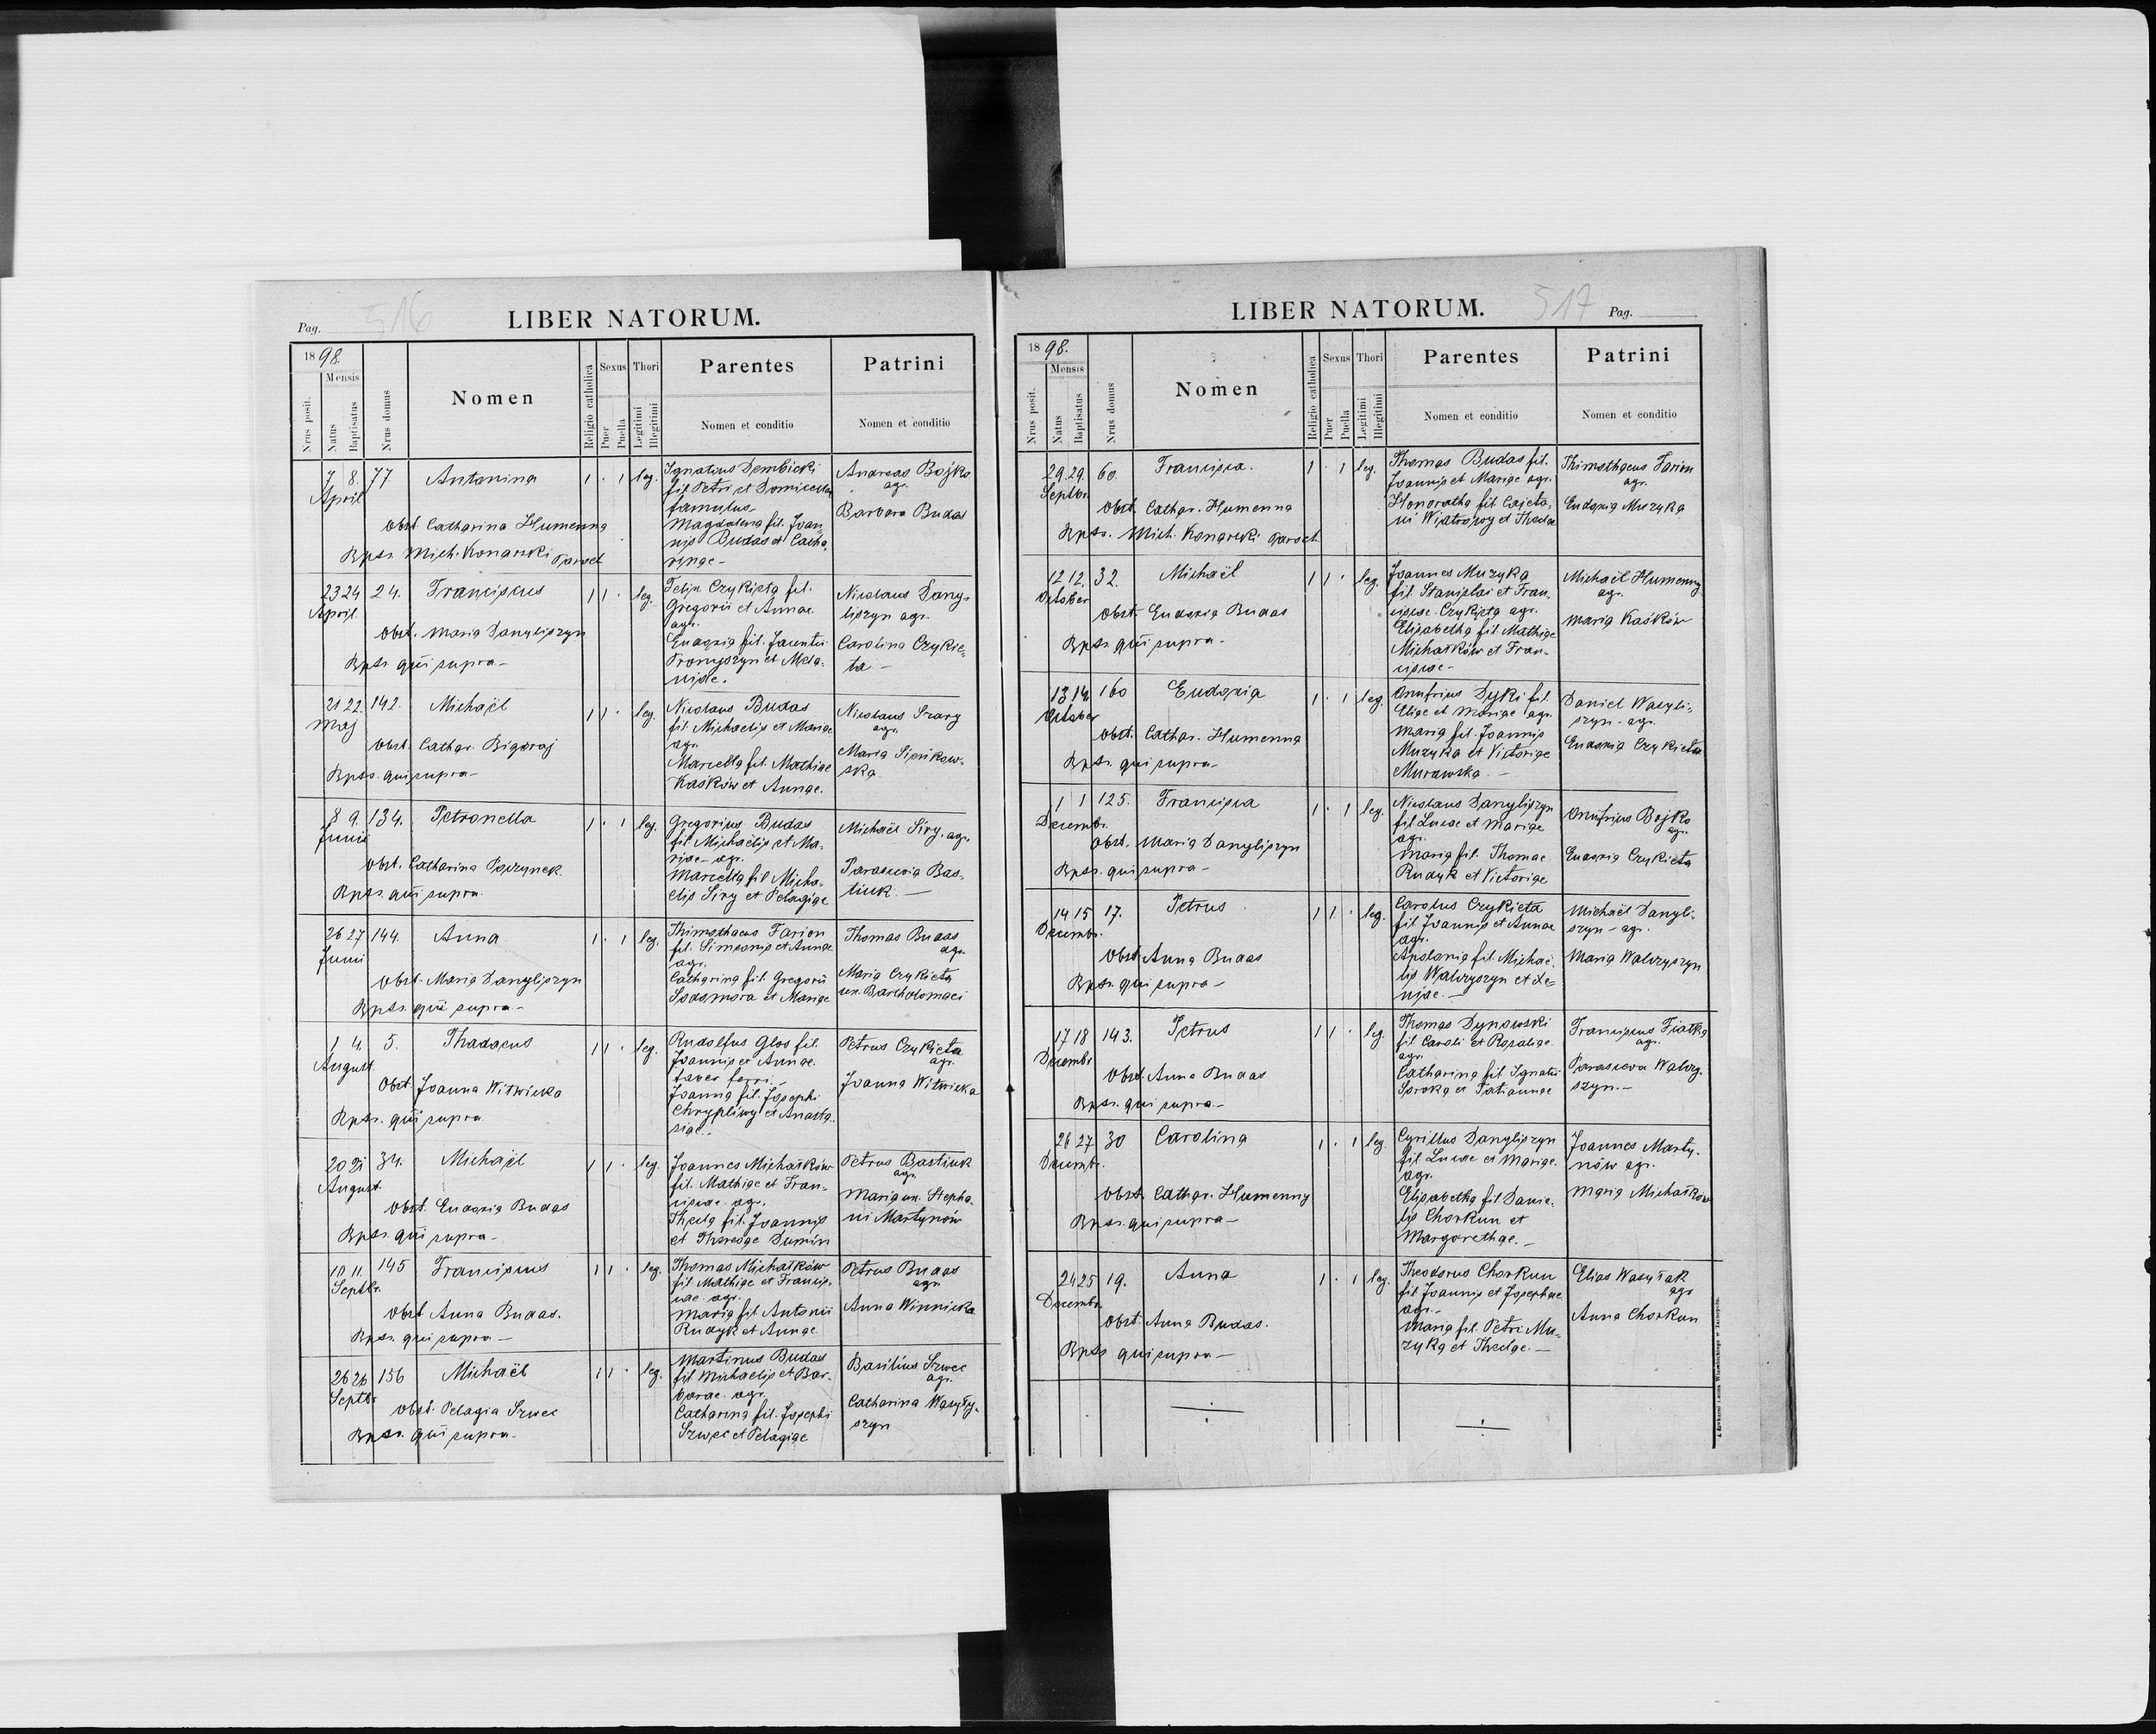 Pag. 516
LIBER NATORUM.
1898.
Mensis
Nrus posit.
Natus
Baptisatus
Nrus domus
Nomen
Religio catholica
Sexus
Puer
Puella
Thori
Legitimi
Illegitimi
Parentes
Nomen et conditio
Patrini
Nomen et conditio
7 8. 77. Antonina 1 · 1 leg.
April
Obst. Catharina Humenna
Bpts. Mich. Konarski Paroch
Ignatius Dembicki
fil. Petri et Domicella
famulus
Magdalena fil. Joan-
nis Budas et Catha-
rinae -
Andreas Bojko
agr.
Barbara Budas
23 24 24. Franciscus 1 1 · leg.
April
Obst. Maria Danyliszyn
Bpts. qui supra -
Felix Czykieta fil.
Gregorii et Annae
agr.
Eudoxia fil. Jacentii
Promyszyn et Mela-
niae.
Nicolaus Dany-
liszyn agr.
Carolina Czykie-
ta -
21 22. 142. Michaël 1 1 · leg.
Maj
Obst. Cathar. Bigoraj
Bpts. qui supra -
Nicolaus Budas
fil. Michaelis et Mariae
agr.
Marcella fil. Mathiae
Kaśków et Annae.
Nicolaus Szary
agr.
Maria
ska
8 9. 134. Petronella 1 · 1 leg.
Junii
Obst. Catharina
Bpts. qui supra
Gregorius Budas
fil. Michaëlis et Ma-
riae - agr.
Marcella fil. Micha-
elis Siry et Pelagiae
Michaël Siry. agr.
Parascevia Bas-
tiuk. -
26 27 144. Anna 1 · 1 leg.
Junii
Obst. Maria Danyliszyn
Bpts. qui supra -
Thimothaeus Farion
fil. Simeonis et Annae
agr.
Catharina fil. Gregorii
Sodomora et Mariae
Thomas Budas
agr.
Maria Czykieta
ux. Bartholomaei
1 4. 5. Thadaeus 1 1 · leg.
August.
Obst. Joanna Witwicka
Bpts. qui supra
Rudolfus Glos fil.
Joannis et Annae.
faber ferri. -
Joanna fil. Josephi
Chrypliwy et Anasta-
siae. -
Petrus Czykieta
agr.
Joanna Witwicka
20 21 34. Michaël 1 1 · leg.
August.
Obst. Eudoxia Budas
Bpts. qui supra -
Joannes Michałków
fil. Mathiae et Fran-
ciscae. agr.
Thecla fil. Joannis
et Theresae Dumin
Petrus Bastiuk
agr.
Maria ux. Stepha-
ni Martynów
10 11. 145 Franciscus 1 1 · leg.
Septbr.
Obst Anna Budas.
Bpts. qui supra -
Thomas Michałków
fil. Mathiae et Francis-
cae. agr.
Maria fil. Antonii
Rudyk et Annae
Petrus Budas
agr
Anna Winnicka
26 26 156 Michaël 1 1 · leg.
Septbr
Obst. Pelagia Szwec
Bpts. qui supra -
Martinus Budas
fil. Michaelis et Bar-
barae. agr.
Catharina fil. Josephi
Szwec et Pelagiae
Basilius Szwec
agr.
Catharina Wasyły-
szyn
LIBER NATORUM.
517 Pag.
1898.
Mensis
Nrus posit.
Natus
Baptisatus
Nrus domus
Nomen
Religio catholica
Sexus
Puer
Puella
Thori
Legitimi
Illegitimi
Parentes
Nomen et conditio
Patrini
Nomen et conditio
29. 29. 60. Francisca. 1 · 1 leg.
Septbr.
Obst. Cathar. Humenna
Bpts. Mich. Konarski Paroch
Thomas Budas fil.
Joannis et Mariae agr.
Honoratha fil. Cajeta-
ni Wiatrowy et Theclae
Thimothaeus Farion
agr.
Eudoxia Muzyka
12 12. 32. Michaël 1 1 · leg.
October
Obst. Eudoxia Budas
Bpts. qui supra -
Joannes Muzyka
fil. Stanislai et Fran-
ciscae Czykieta agr.
Elisabetha fil. Mathiae
Michałków et Fran-
ciscae -
Michaël Humenny
agr.
Maria Kaśków
13 14. 160 Eudoxia 1 · 1 leg.
October
Obst. Cathar. Humenna
Bpts. qui supra -
Onufrius Dyki fil.
Eliae et Mariae agr.
Maria fil. Joannis
Muzyka et Victoriae
Murawska. -
Daniel Wasyli-
szyn - agr.
Eudoxia Czykieta
1 1 125. Francisca 1 · 1 leg.
Decembr.
Obst. Maria Danyliszyn
Bpts. qui supra -
Nicolaus Danyliszyn
fil. Lucae et Mariae
agr.
Maria fil. Thomae
Rudyk et Victoriae
Onufrius Bojko
agr.
Eudoxia Czykieta
14 15 17. Petrus 1 1 · leg.
Decembr.
Obst. Anna Budas
Bpts. qui supra -
Carolus Czykieta
fil. Joannis et Annae
agr.
Apolonia fil. Michae-
lis Walczyszyn et Xe-
niae. -
Michaël Danyli-
szyn - agr.
Maria Walczyszyn
17 18 143. Petrus 1 1 · leg
Decembr
Obst. Anna Budas
Bpts. qui supra. -
Thomas Dynowski
fil. Caroli et Rosaliae
agr.
Catharina fil. Ignatii
Soroka et Tatiannae
Franciscus Fiałka
agr.
Parasceva Walczy-
szyn. -
26 27 30 Carolina 1 · 1 leg
Decembr.
Obst. Cathar. Humenny
Bpts. qui supra -
Cyrillus Danyliszyn
fil. Lucae et Mariae.
agr.
Elisabetha fil. Danie-
lis Chorkun et
Margarethae. -
Joannes Marty-
nów agr.
Maria Michałków
24 25 19. Anna 1 · 1 leg.
Decembr.
Obst. Anna Budas.
Bpts qui supra -
Theodorus Chorkun
fil. Joannis et Josephae
agr. -
Maria fil. Petri Mu-
zyka et Theclae. -
Elias Wasyłak
agr
Anna Chorkun